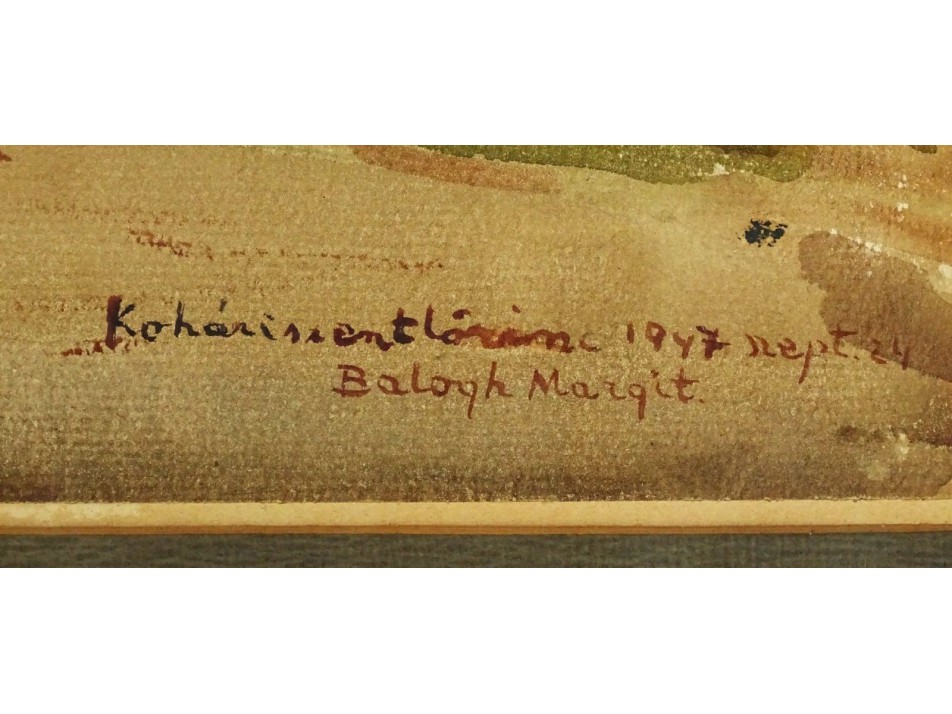 Koháriszentlőrinc 1947 szept. 24
Balogh Margit.